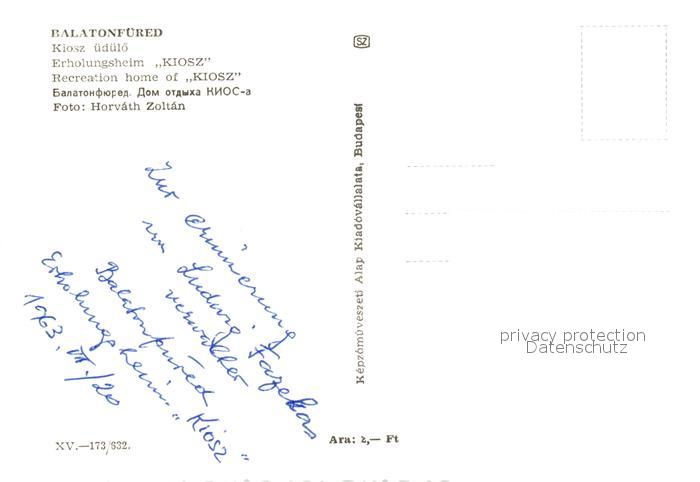 BALATONFÜRED
Kiosz üdülő
Erholungsheim „KIOSZ"
Recreation home of „KIOSZ"
Балатонфюред. Дом отдыха КИОС-а
Foto: Horváth Zoltán
SZ
Képzőművészeti Alap Kiadóvállalata, Budapest
Zur Erinnerung
von Ludwig Fazekas
verwalter
Balatonfüred
Erholungsheim „Kiosz"
1963. VII/20
privacy protection
Datenschutz
XV.—173/632.
Ara: 2,— Ft